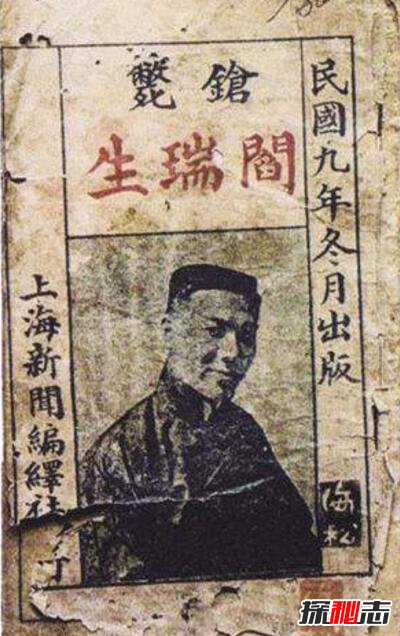 民國九年冬月出版
鎗斃
閻瑞生
上海新聞編繹社
海松
探秘志